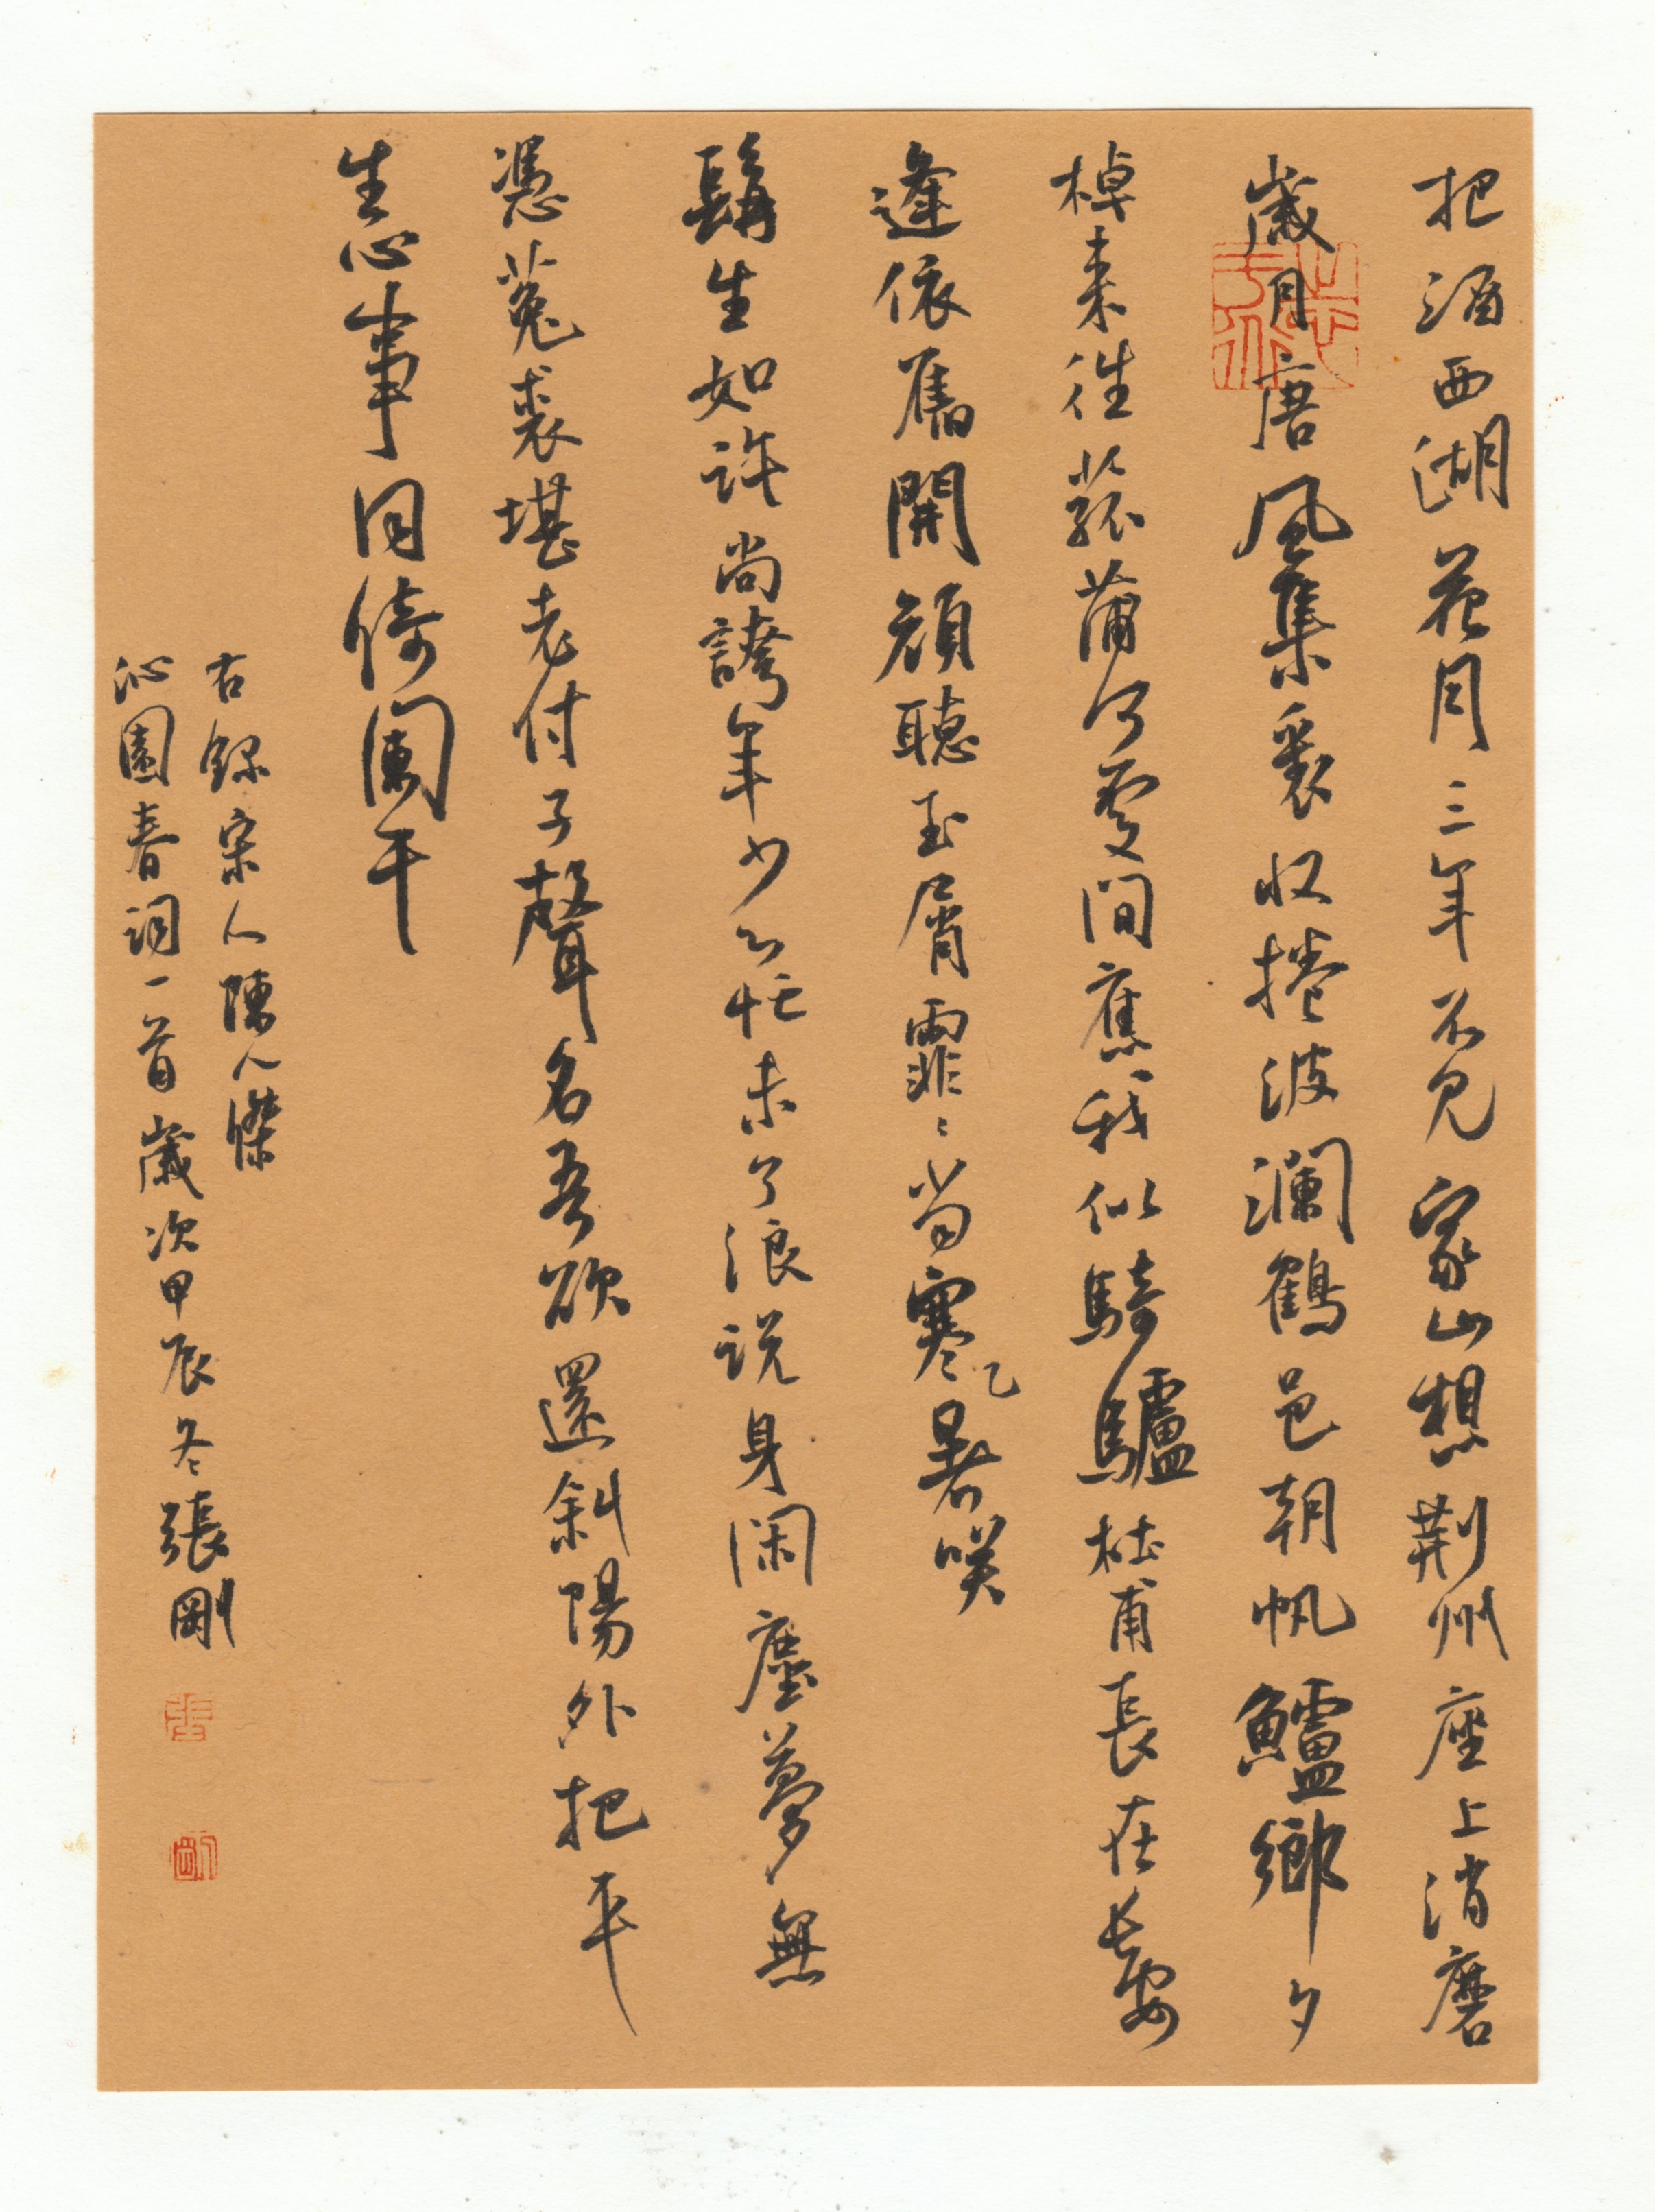 把酒西湖花月三年不見家山想荆州座上消磨
歲月唐風集裏收捲波瀾鶴邑朝帆鱸鄉夕
棹來往菰蒲何處間應我似騎驢杜甫長在長安
逢依舊開顔聽玉屑霏〻當寒暑咲
鬅生如許尚誇年少心忙未了浪説身閑塵夢無
憑菟裘堪老付子聲名吾欲還斜陽外把平
生心事同倚闌干
右録宋人陳人傑
沁園春詞一首歲次甲辰冬張剛